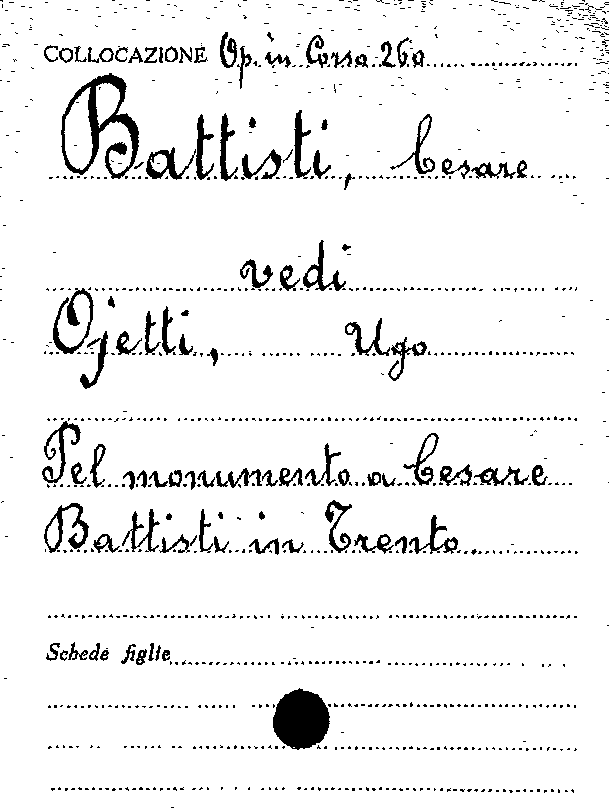 COLLOCAZIONE Op. in Corso 260
Battisti, Cesare
vedi
Ojetti, Ugo
Pel monumento a Cesare
Battisti in Trento.
Schede figlie